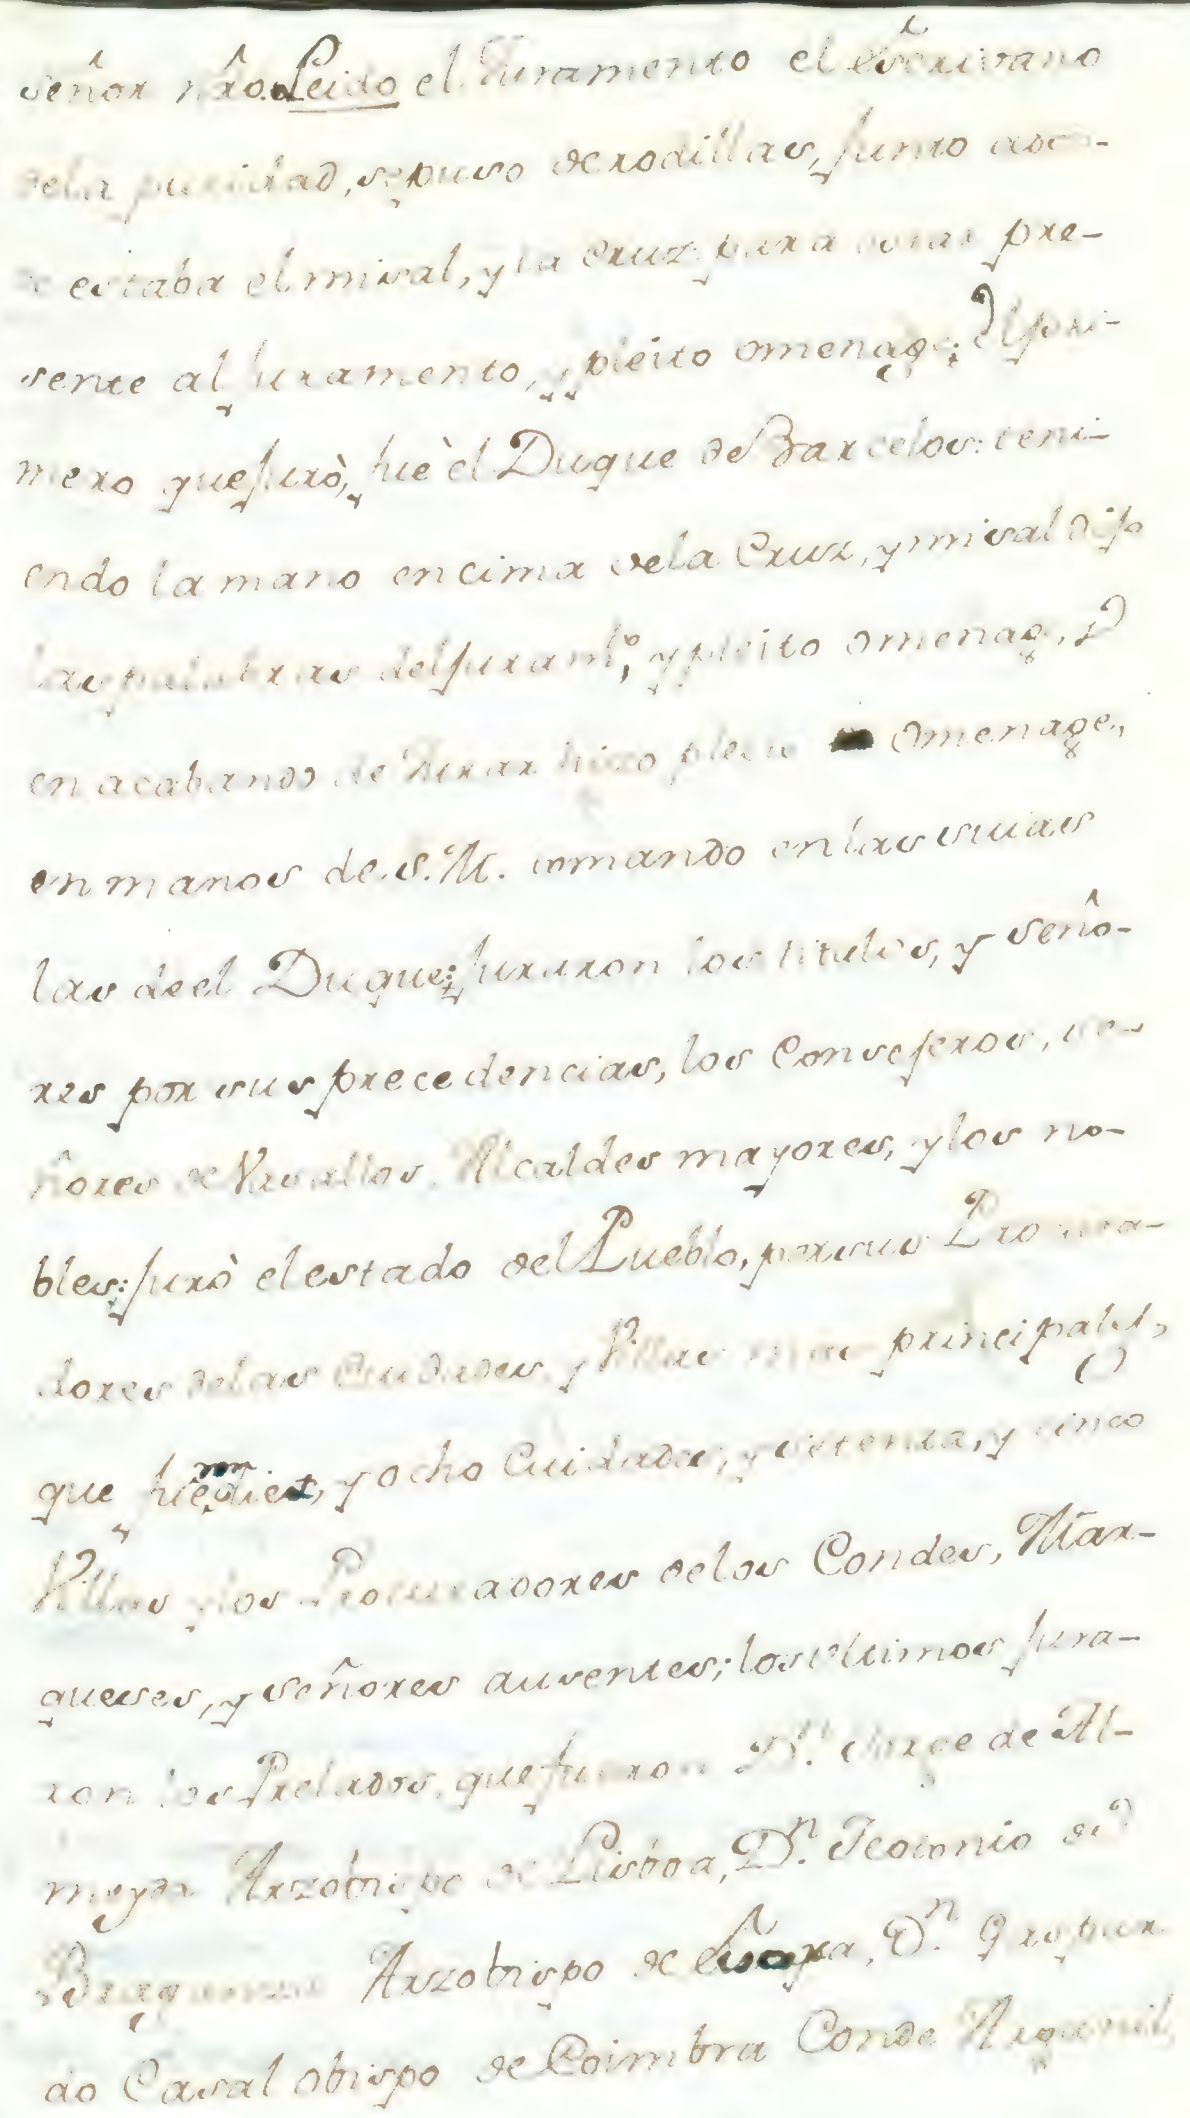 señor nr̂o. Leido el Juramento el escrivano
dela puridad, sepuso derodillas, Junto adon-
de estaba el misal, y la Cruz para estar pre-
sente al Juramento, y pleito omenage; el pri-
mero que Jurò, fuè èl Duque de Barcelos: teni-
endo la mano encima dela Cruz, y misal dijo
las palabras del Juram.to, y pleito omenag.e
en acabando de Jurar hizo pleito omenage,
en manos de S. M. tomando enlas suias
las deel Duque; Juraron los titulos, y seño-
res por sus precedencias, los Consejeros, se-
ñores de Vasallos, Alcaldes mayores, ylos no-
bles; Jurò el estado del Pueblo, porsus Procura-
dores delas Ciudades, y Villas mas principales,
que fueron diez, y ocho Cuidades, y setenta, y cinco
Villas ylos Procuradores delos Condes, Mar-
queses, y señores ausentes; los Ultimos Jura-
ron los Prelados, que fueron D.n Jorge de Al-
meyda Arzobispo de Lisboa, D.n Teotonio de
Braganza Arzobispo de Evora, D.n Gaspar
do Casal obispo de Coimbra Conde Arganil